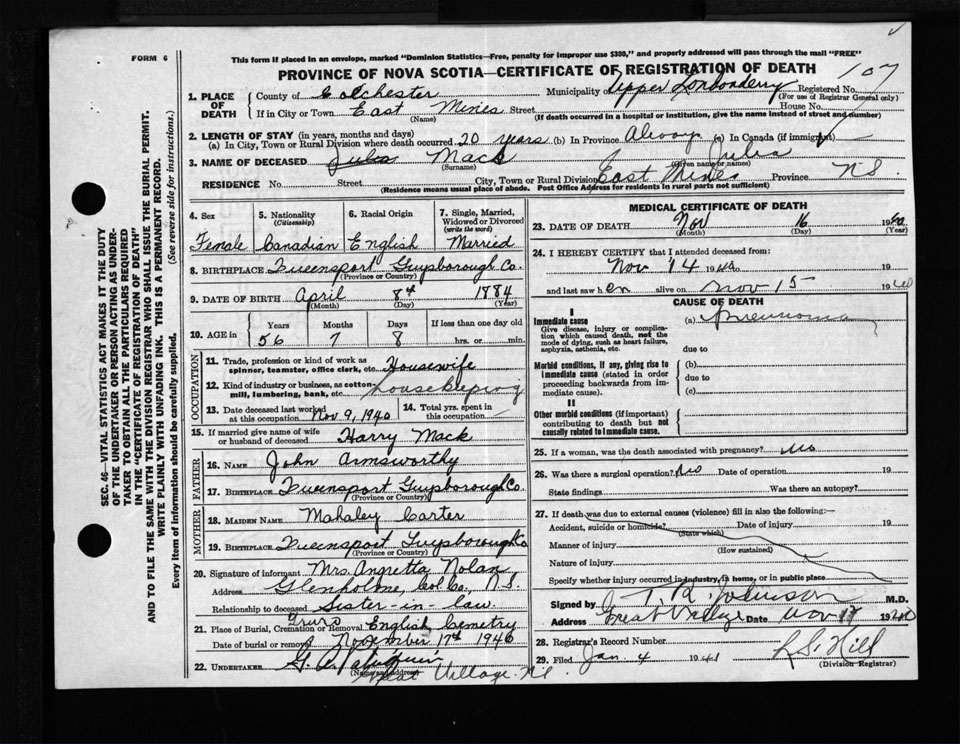 FORM 6
This form if placed in an envelope, marked "Dominion Statistics—Free, penalty for improper use $300," and properly addressed will pass through the mail "FREE"
PROVINCE OF NOVA SCOTIA—CERTIFICATE OF REGISTRATION OF DEATH
107
SEC. 46—VITAL STATISTICS ACT MAKES IT THE DUTY
OF THE UNDERTAKER OR PERSON ACTING AS UNDER-
TAKER TO OBTAIN ALL THE PARTICULARS REQUIRED
IN THE "CERTIFICATE OF REGISTRATION OF DEATH"
AND TO FILE THE SAME WITH THE DIVISION REGISTRAR WHO SHALL ISSUE THE BURIAL PERMIT.
WRITE PLAINLY WITH UNFADING INK. THIS IS A PERMANENT RECORD.
Every item of information should be carefully supplied. (See reverse side for instructions.)
1. PLACE OF DEATH
County of Colchester Municipality Upper Londonderry Registered No.
(For use of Registrar General only)
If in City or Town East Mines Street House No.
(Name) (If death occurred in a hospital or institution, give the name instead of street and number)
2. LENGTH OF STAY (in years, months and days)
(a) In City, Town or Rural Division where death occurred 20 years (b) In Province Always (c) In Canada (if immigrant)
3. NAME OF DECEASED Julia Mack Julia
(Surname) (Given name or names)
RESIDENCE No. Street City, Town or Rural Division East Mines Province N.S.
(Residence means usual place of abode. Post Office Address for residents in rural parts not sufficient)
4. Sex Female
5. Nationality (Citizenship) Canadian
6. Racial Origin English
7. Single, Married, Widowed or Divorced (write the word) Married
8. BIRTHPLACE Queensport Guysborough Co.
(Province or Country)
9. DATE OF BIRTH April 8th 1884
(Month) (Day) (Year)
10. AGE in Years 56 Months 7 Days 8 If less than one day old hrs. or min.
OCCUPATION
11. Trade, profession or kind of work as spinner, teamster, office clerk, etc. Housewife
12. Kind of industry or business, as cotton-mill, lumbering, bank, etc. Housekeeping
13. Date deceased last worked at this occupation Nov 9, 1940
14. Total yrs. spent in this occupation
15. If married give name of wife or husband of deceased Harry Mack
FATHER
16. NAME John Armsworthy
17. BIRTHPLACE Queensport Guysborough Co
(Province or Country)
MOTHER
18. MAIDEN NAME Mahaley Carter
19. BIRTHPLACE Queensport Guysborough Co
(Province or Country)
20. Signature of informant Mrs. Angretta Nolan
Address Glenholme, Col. Co., N.S.
Relationship to deceased Sister-in-law
21. Place of Burial, Cremation or Removal Truro English Cemetry
Date of burial or removal November 17th 1940
22. UNDERTAKER G.
(Name and address)
Great Village N.S.
MEDICAL CERTIFICATE OF DEATH
23. DATE OF DEATH Nov 16 1940
(Month) (Day) (Year)
24. I HEREBY CERTIFY that I attended deceased from:
Nov 14 1940 19
and last saw h er alive on Nov 15 1940
CAUSE OF DEATH
I
Immediate cause (a) Pneumonia
Give disease, injury or complication which caused death, not the mode of dying, such as heart failure, asphyxia, asthenia, etc.
due to
Morbid conditions, if any, giving rise to immediate cause (stated in order proceeding backwards from immediate cause).
(b)
due to
(c)
II
Other morbid conditions (if important) contributing to death but not causally related to immediate cause.
25. If a woman, was the death associated with pregnancy? No
26. Was there a surgical operation? No Date of operation 19
State findings Was there an autopsy?
27. If death was due to external causes (violence) fill in also the following:—
Accident, suicide or homicide? Date of injury 19
(State which)
Manner of injury
(How sustained)
Nature of injury
Specify whether injury occurred in industry, in home, or in public place
Signed by T. R. Johnson M.D.
Address Great Village Date Nov 17 1940
28. Registrar's Record Number
29. Filed Jan. 4 1941 L. S. Hill
(Division Registrar)